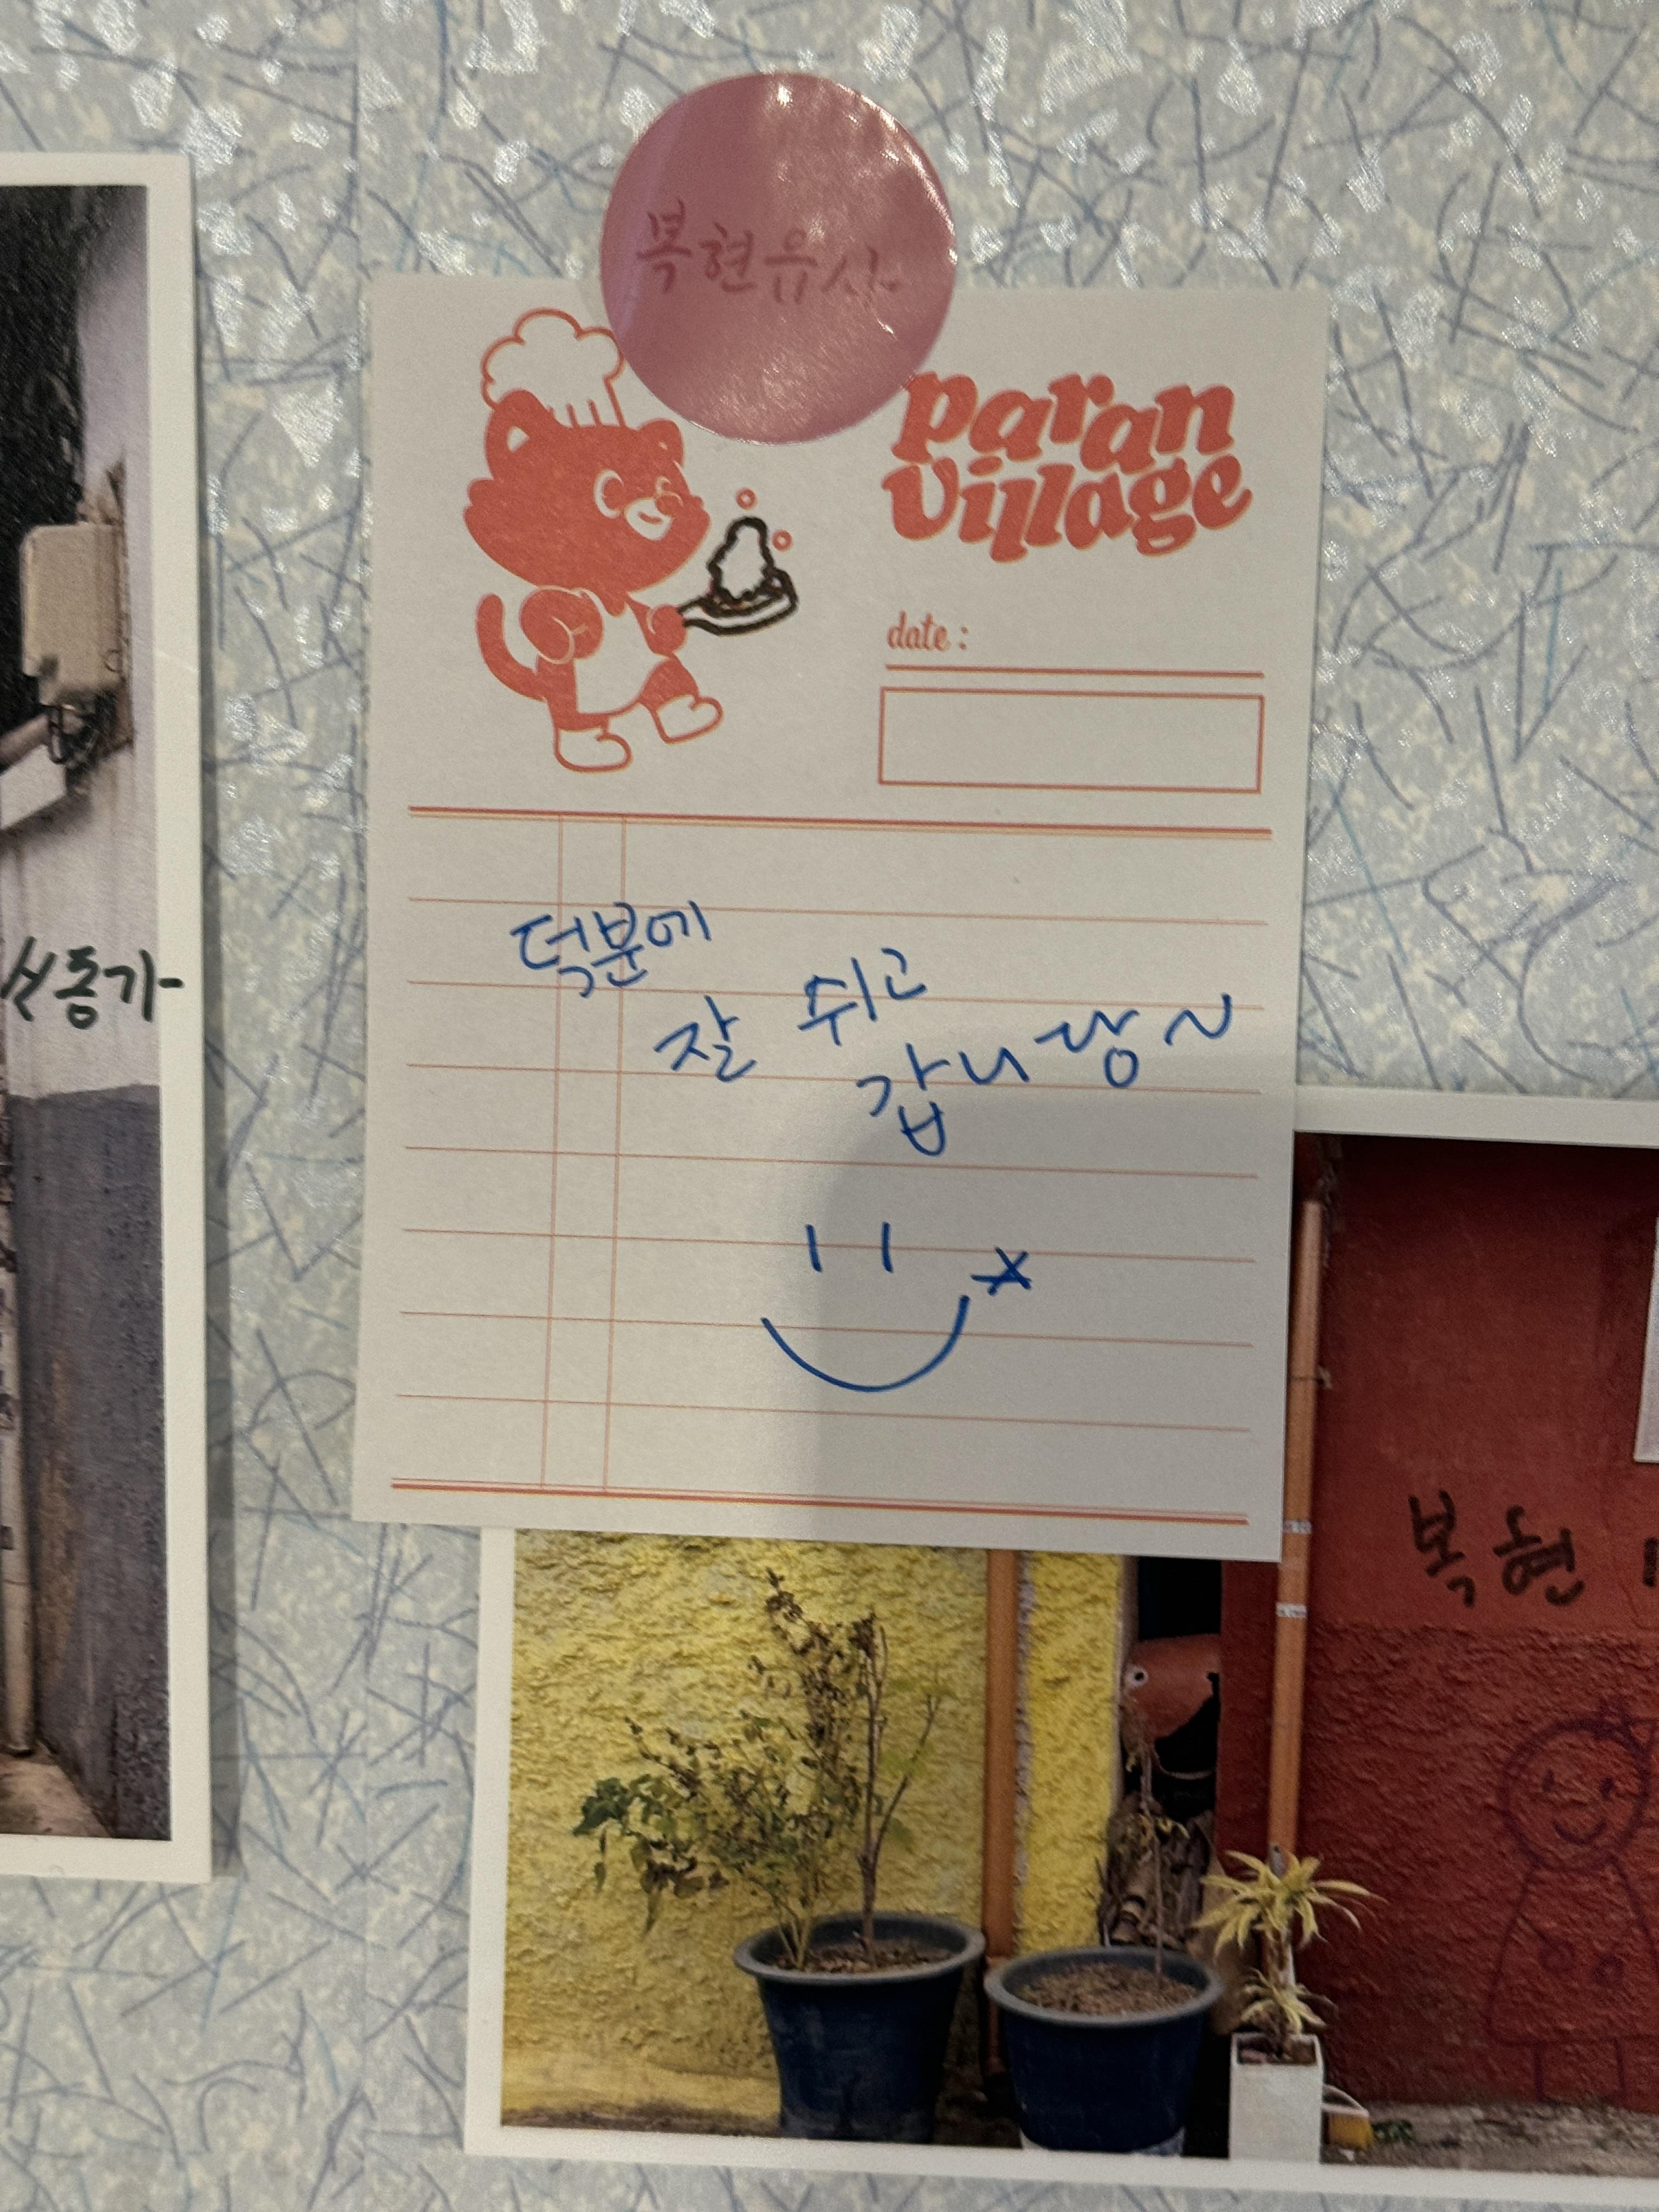 복현유사
paran
village
date :
덕분에
잘 쉬고
갑니랑~
동가
복현